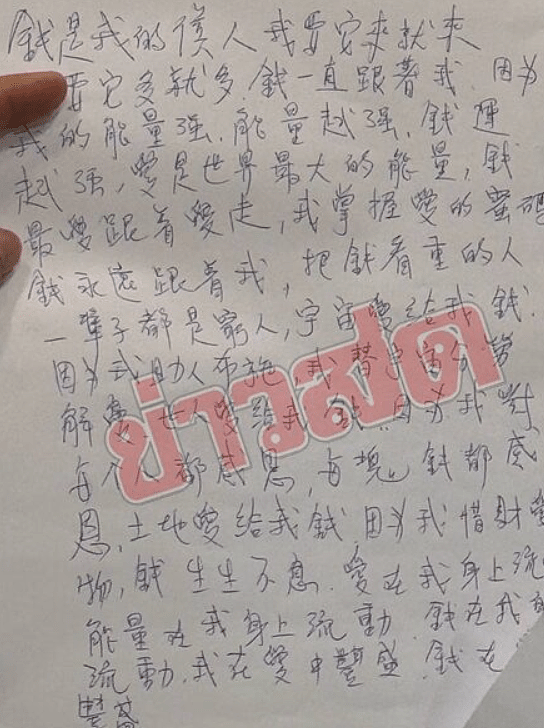 錢是我的僕人 我要它來就來
要它多就多.錢一直跟著我.因为
我的能量强.能量越强,錢運
越强,愛是世界最大的能量,錢
最愛跟着愛走,我掌握愛的蜜碼
錢永遠跟着我,把錢看重的人
一輩子都是窮人,宇宙愛给我錢.
因为我助人布施,我替宇宙分劳
解憂.世人愛给我錢.因为我對
每个人都感恩,每塊錢都感
恩,土地愛给我錢.因为我惜財愛
物,錢生生不息.愛在我身上流
能量在我身上流動.錢在我身
流動.我在愛中豐盛.錢在
豐盛
ข่าวสด